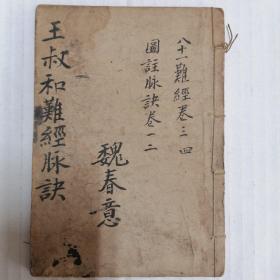 八十一難經卷三 四
圖註脉诀卷一 二
魏春意
王叔和難經脉訣